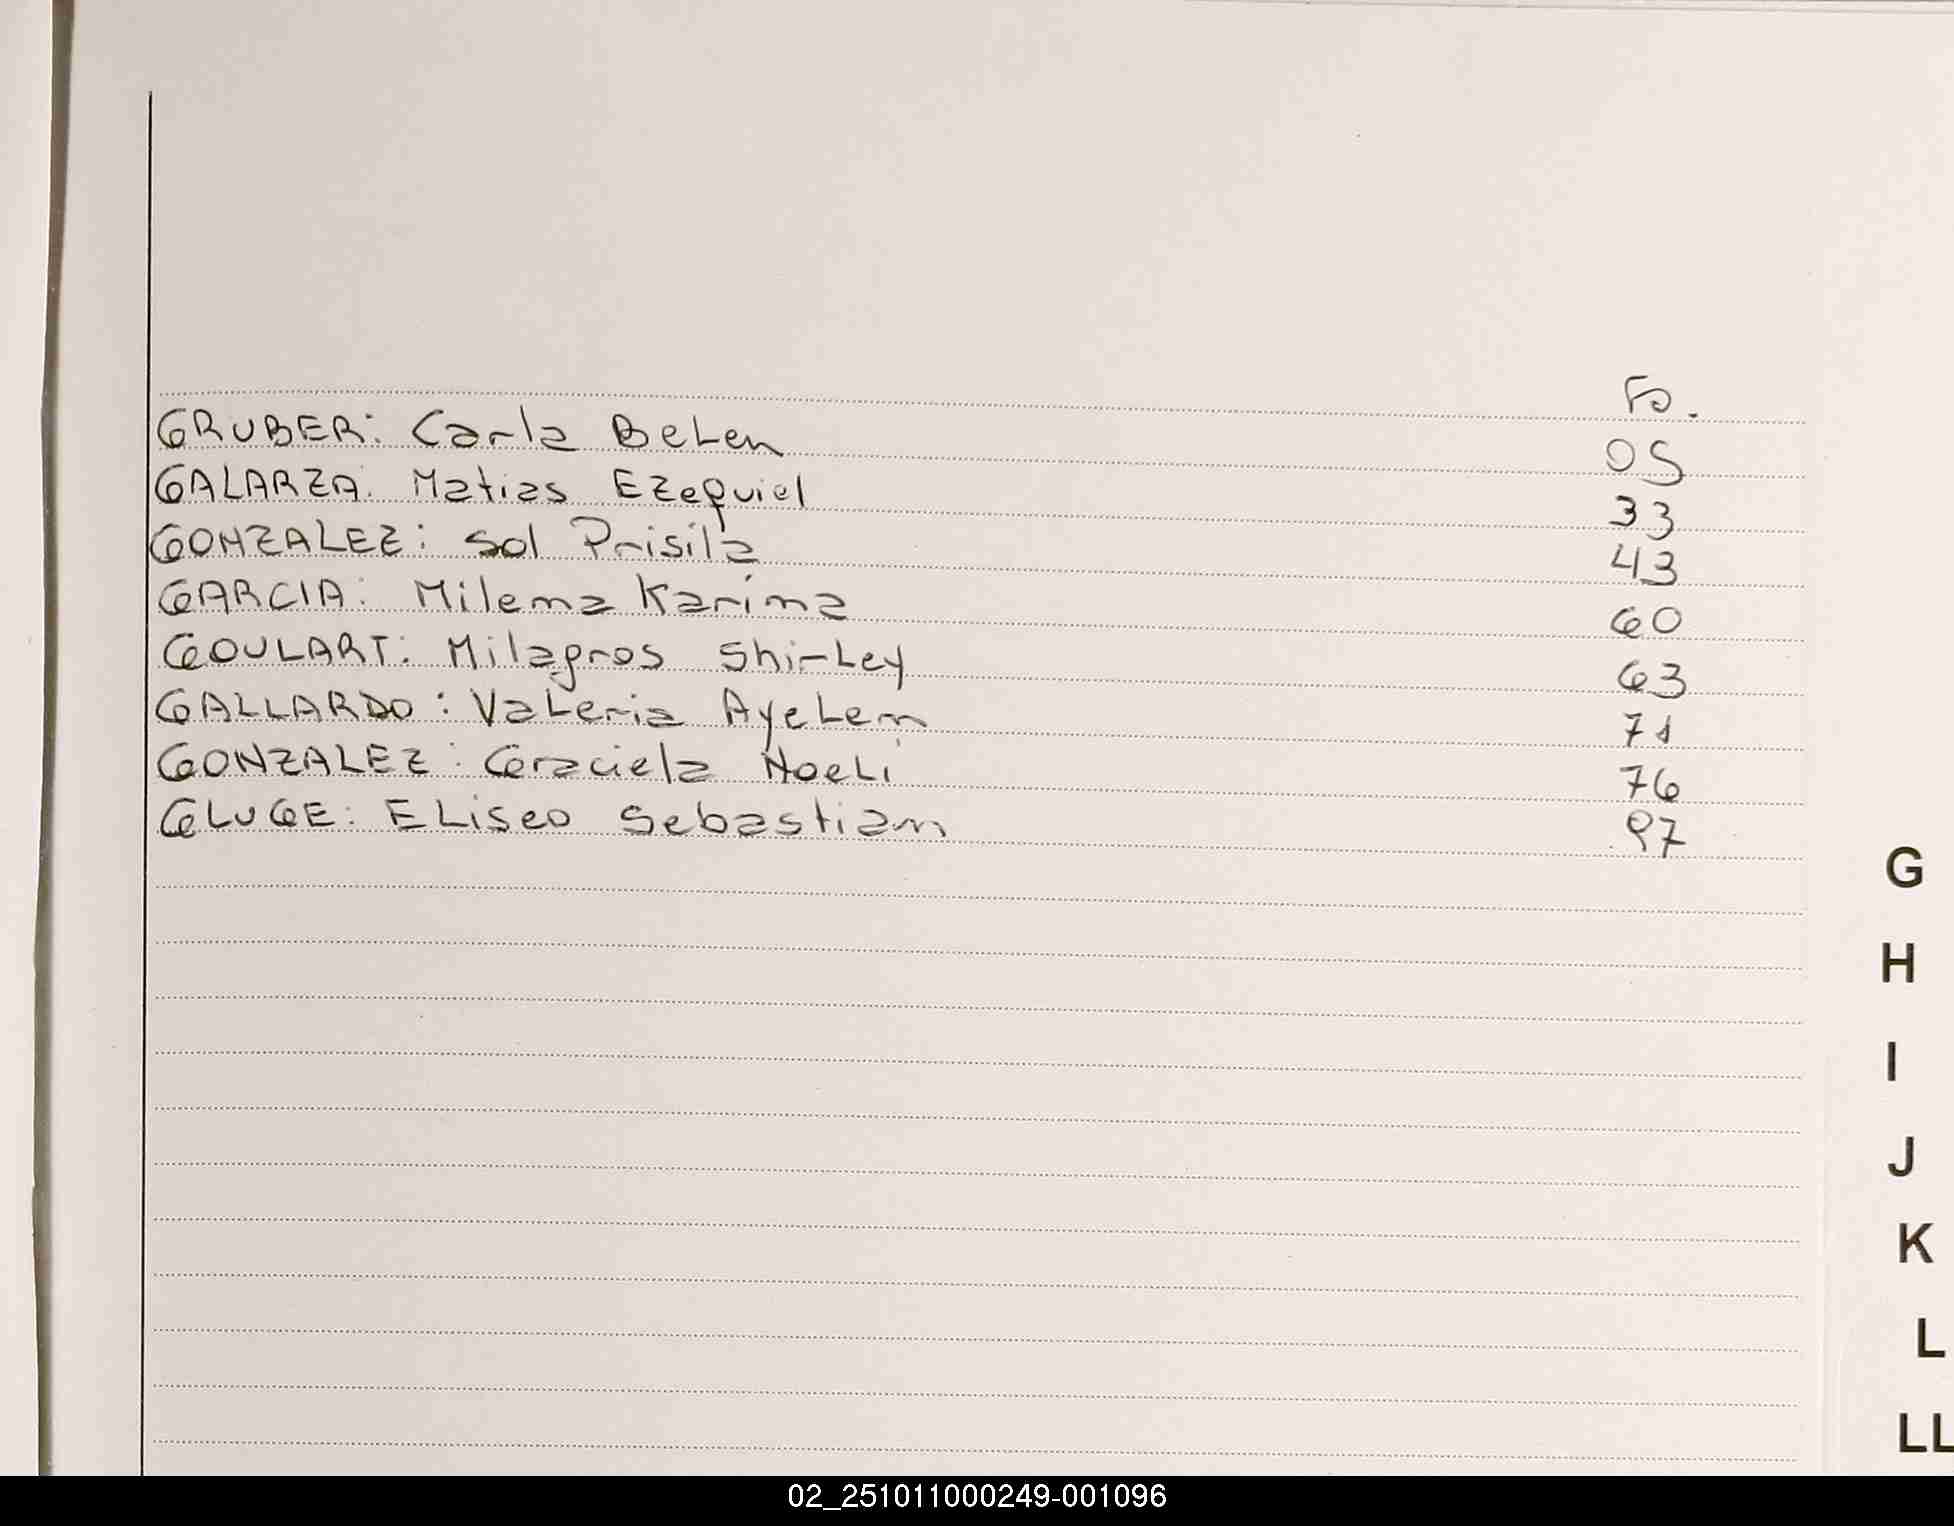 Fo.
GRUBER: Carla Belen 05
GALARZA: Matias Ezequiel 33
GONZALEZ: Sol Prisila 43
GARCIA: Milena Karina 60
GOULART: Milagros Shirley 63
GALLARDO: Valeria Ayelen 71
GONZALEZ: Graciela Noeli 76
GLUGE: Eliseo Sebastian 97
G
H
I
J
K
L
LL
02_251011000249-001096